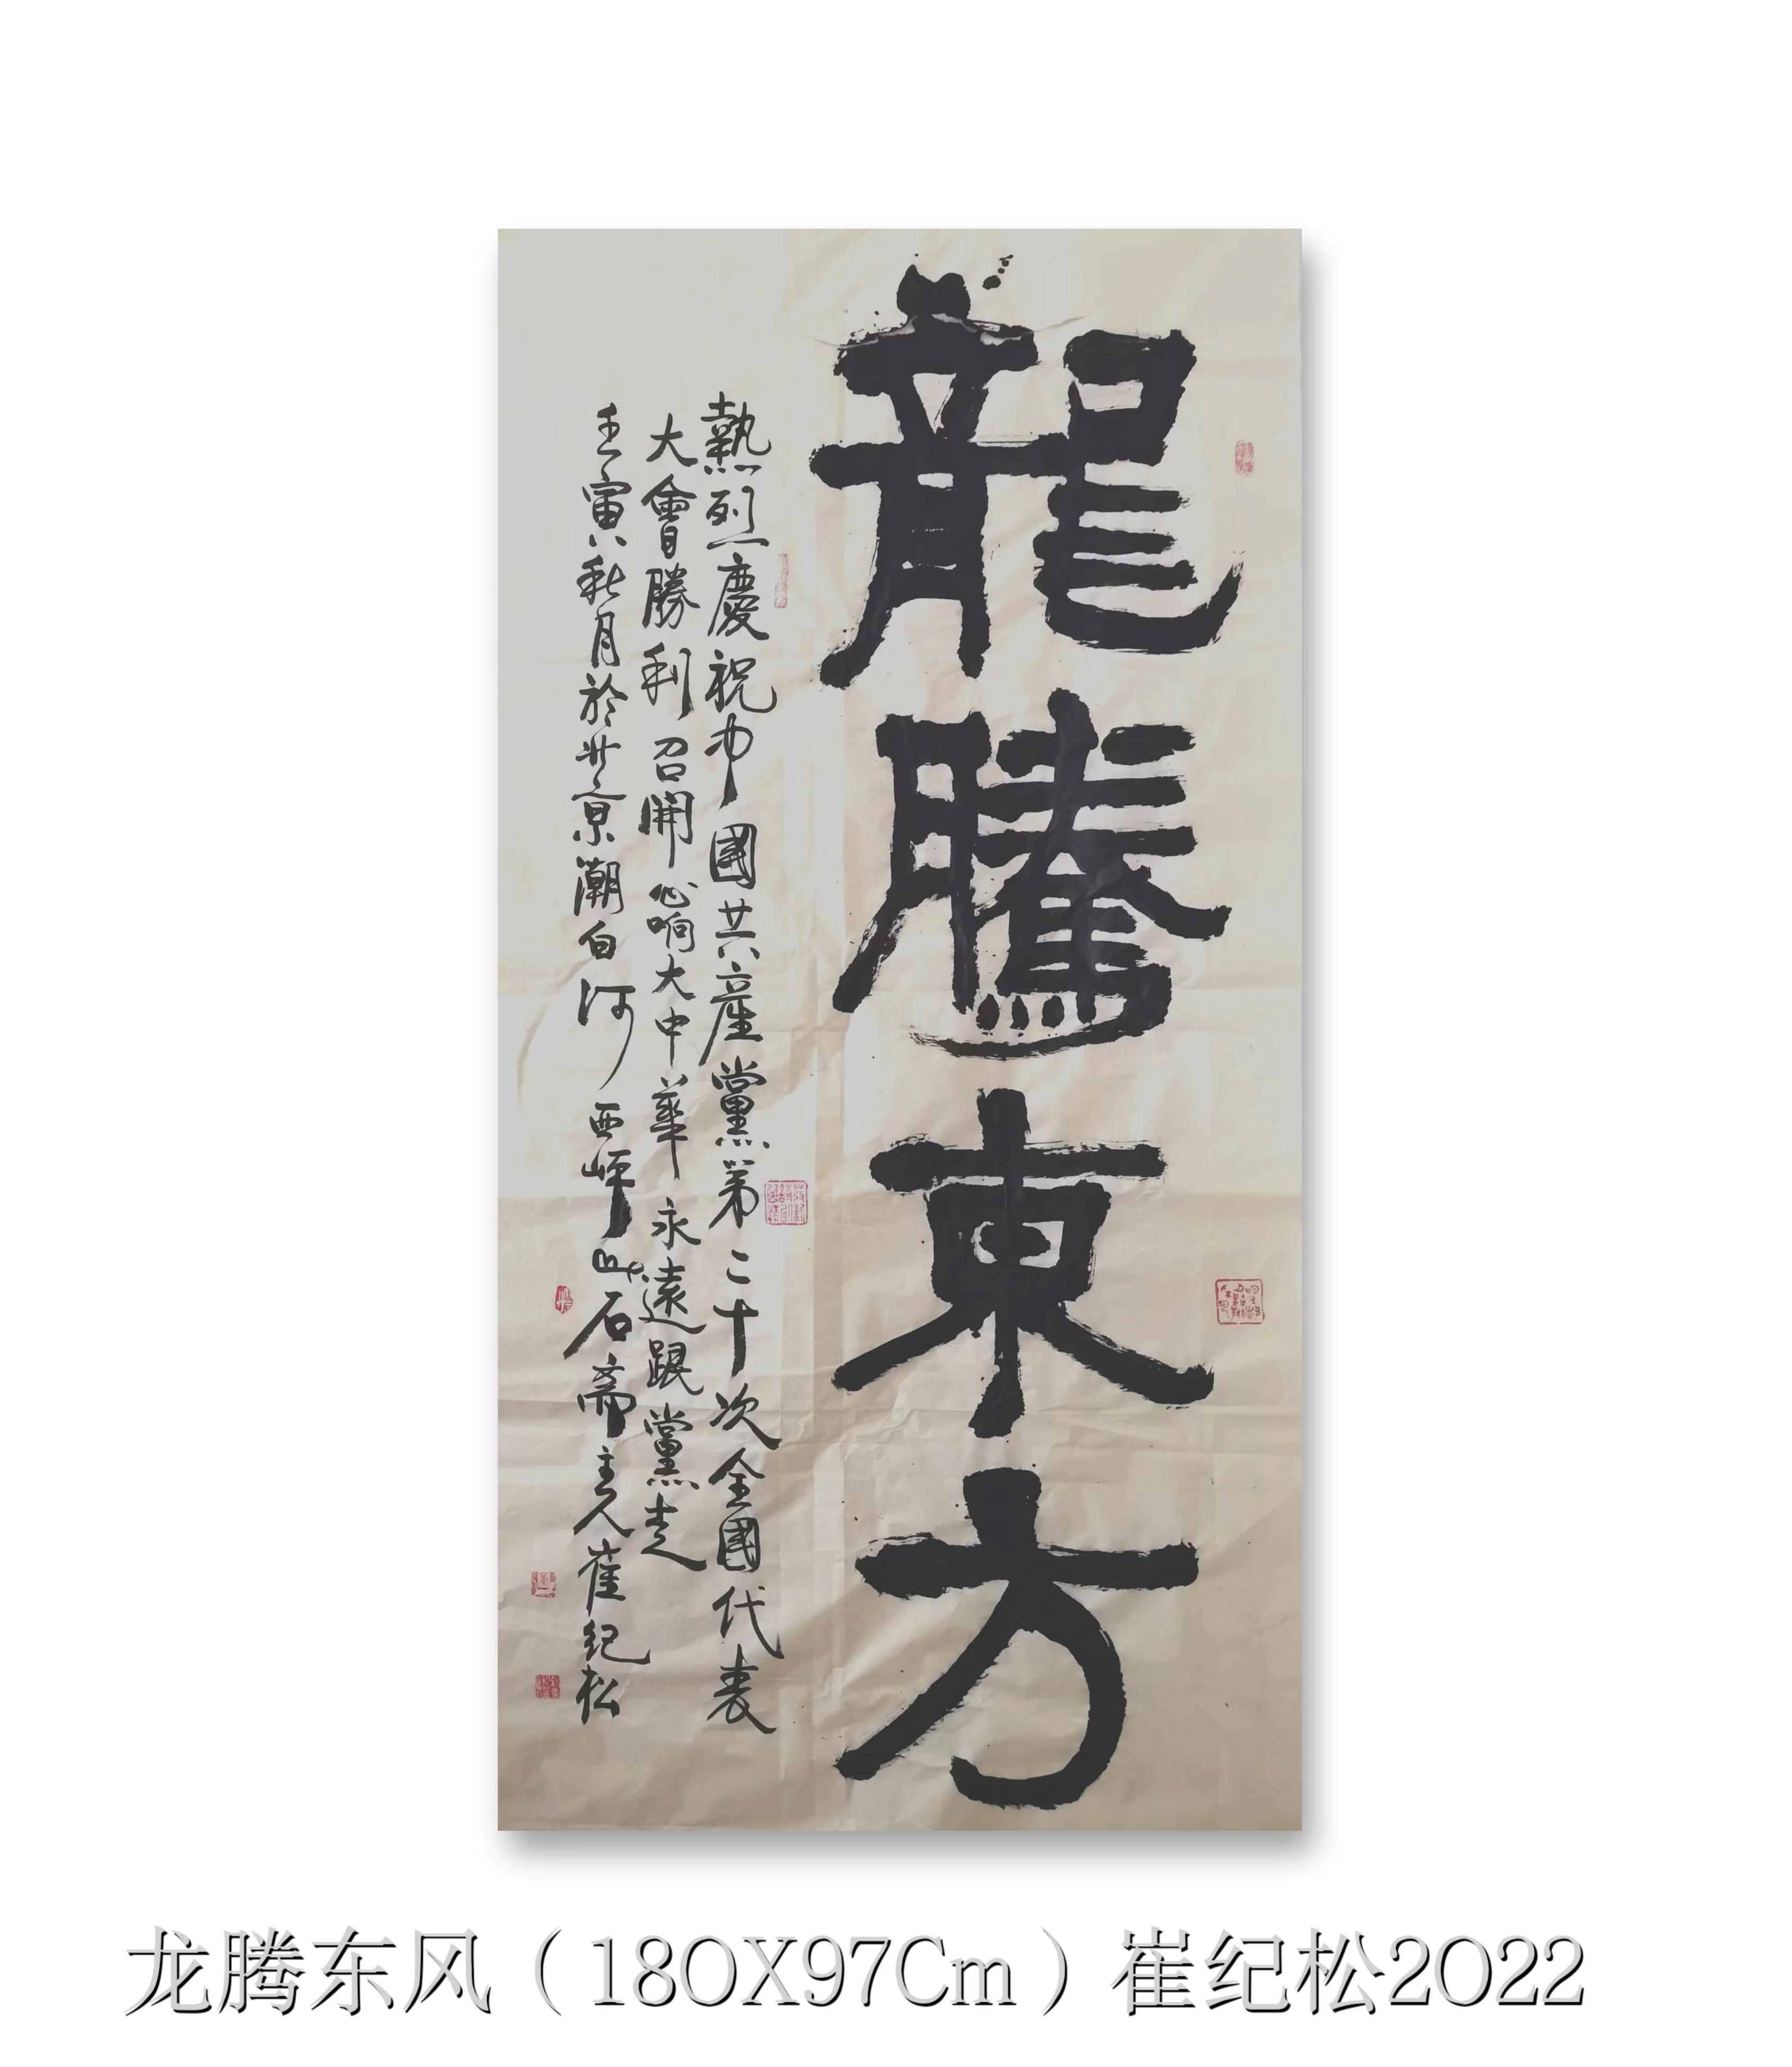 龍騰東方
熱烈慶祝中國共產黨第二十次全國代表
大會勝利召開心响大中華永遠跟黨走
壬寅秋月於北京潮白河西岸山石齋主人崔纪松
龙腾东风（180X97Cm）崔纪松2022